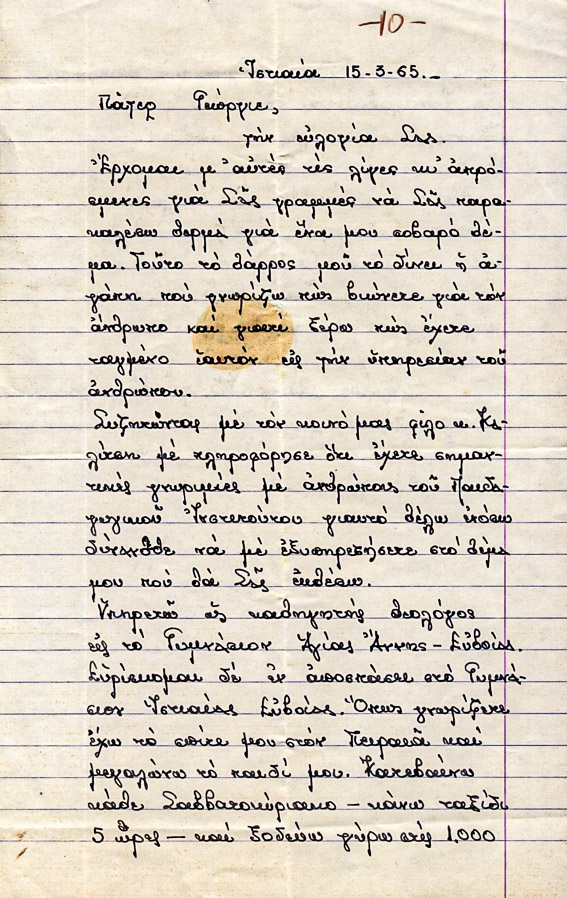 -10-
Ἰστιαία 15-3-65.-
Πάτερ Γεώργιε,
τήν εὐλογία Σας.
Ἔρχομαι μ' αὐτές τίς λίγες κι' ἀπρό-
σμενες γιά Σᾶς γραμμές νά Σᾶς παρα-
καλέσω θερμά γιά ἕνα μου σοβαρό θέ-
μα. Τοῦτο τό θάρρος μοῦ τό δίνει ἡ ἀ-
γάπη πού γνωρίζω πώς βιώνετε γιά τόν
ἄνθρωπο καί γιατί ξέρω πώς ἔχετε
ταγμένο ἑαυτόν εἰς τήν ὑπηρεσίαν τοῦ
ἀνθρώπου.
Συζητῶντας μέ τόν κοινό μας φίλο κ. Κα-
λίτση μέ πληροφόρησε ὅτι ἔχετε σημαν-
τικές γνωριμίες μέ ἀνθρώπους τοῦ Παιδα-
γωγικοῦ Ἰνστιτούτου γιαυτό θέλω ὅσο
δύνασθε νά μέ ἐξυπηρετήσετε στό θέμα
μου πού θά Σᾶς ἐκθέσω.
Ὑπηρετῶ ὡς καθηγητής θεολόγος
εἰς τό Γυμνάσιον Ἁγίας Ἄννης - Εὐβοίας.
Εὑρίσκομαι δέ ἐν ἀποσπάσει στό Γυμνά-
σιον Ἰστιαίας Εὐβοίας. Ὅπως γνωρίζετε
ἔχω τό σπίτι μου στόν Πειραιᾶ καί
μεγαλώνω τό παιδί μου. Κατεβαίνω
κάθε Σαββατοκύριακο - κάνω ταξίδι
5 ὧρες - καί ξοδεύω γύρω στίς 1.000